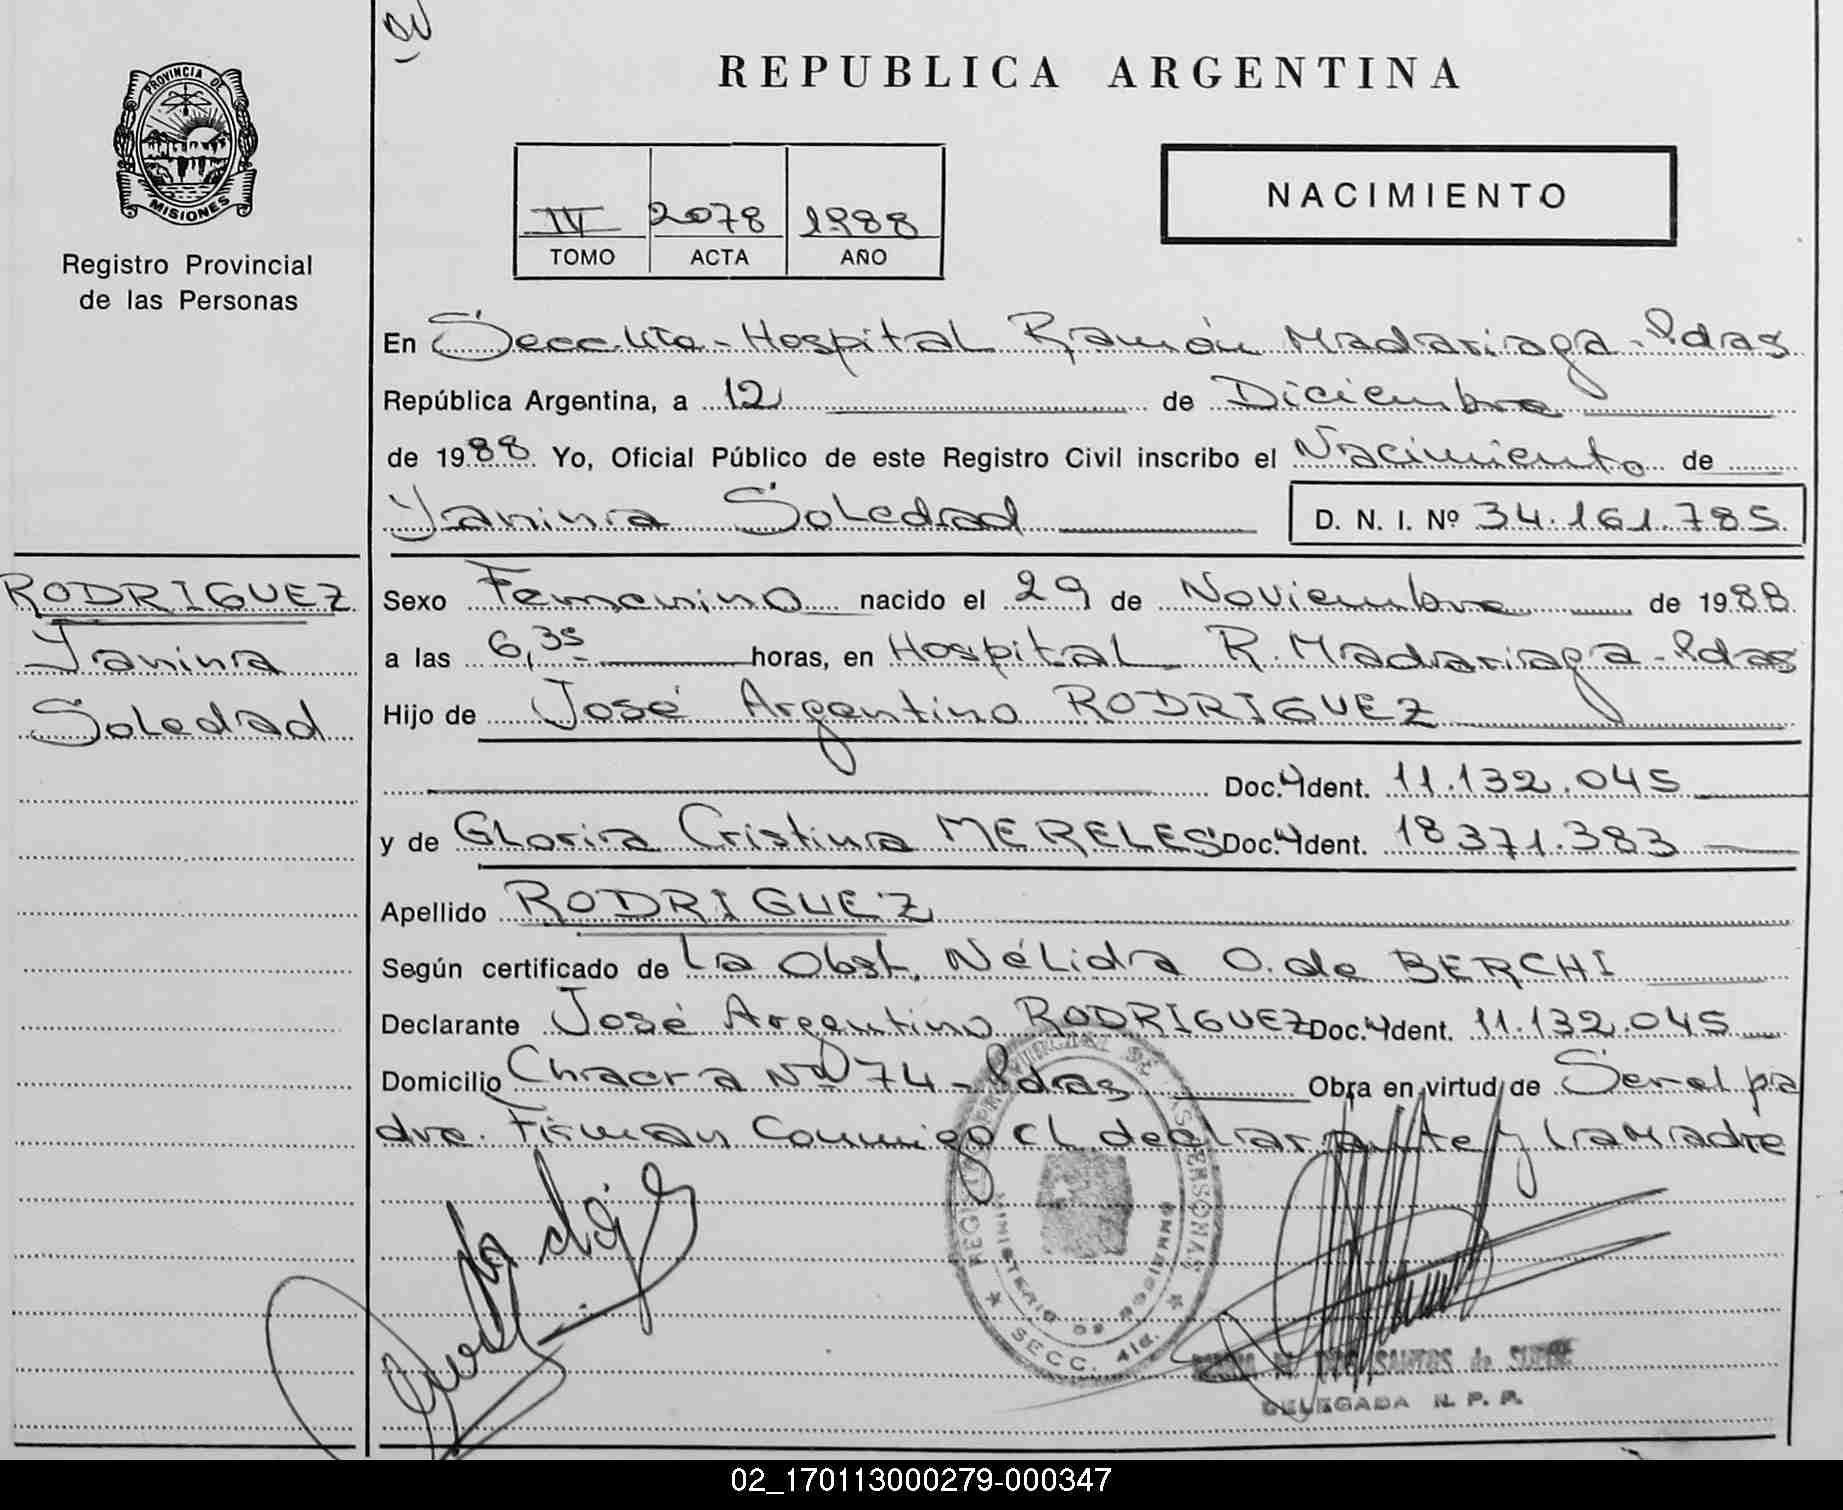 PROVINCIA DE
MISIONES
Registro Provincial
de las Personas
REPUBLICA ARGENTINA
IV 2078 1988
TOMO ACTA AÑO
NACIMIENTO
En Secc. 4ta - Hospital Ramón Madariaga - Pdas
República Argentina, a 12 de Diciembre
de 1988 Yo, Oficial Público de este Registro Civil inscribo el Nacimiento de
Yanina Soledad D. N. I. Nº 34.161.785
RODRIGUEZ
Yanina
Soledad
Sexo Femenino nacido el 29 de Noviembre de 1988
a las 6,35 horas, en Hospital R. Madariaga - Pdas
Hijo de José Argentino RODRIGUEZ
Doc. Ident. 11.132.045
y de Gloria Cristina MERELES Doc. Ident. 18371.383
Apellido RODRIGUEZ
Según certificado de La Obst. Nélida O. de BERCHI
Declarante José Argentino RODRIGUEZ Doc. Ident. 11.132.045
Domicilio Chacra Nº 74 - Pdas Obra en virtud de Ser el pa
dre. Firman Conmigo el declarante y la Madre
REGISTRO PROVINCIAL DE LAS PERSONAS
MINISTERIO DE GOBIERNO
SECC. 4ta.
DOS SANTOS de
DELEGADA R. P. P.
02_170113000279-000347